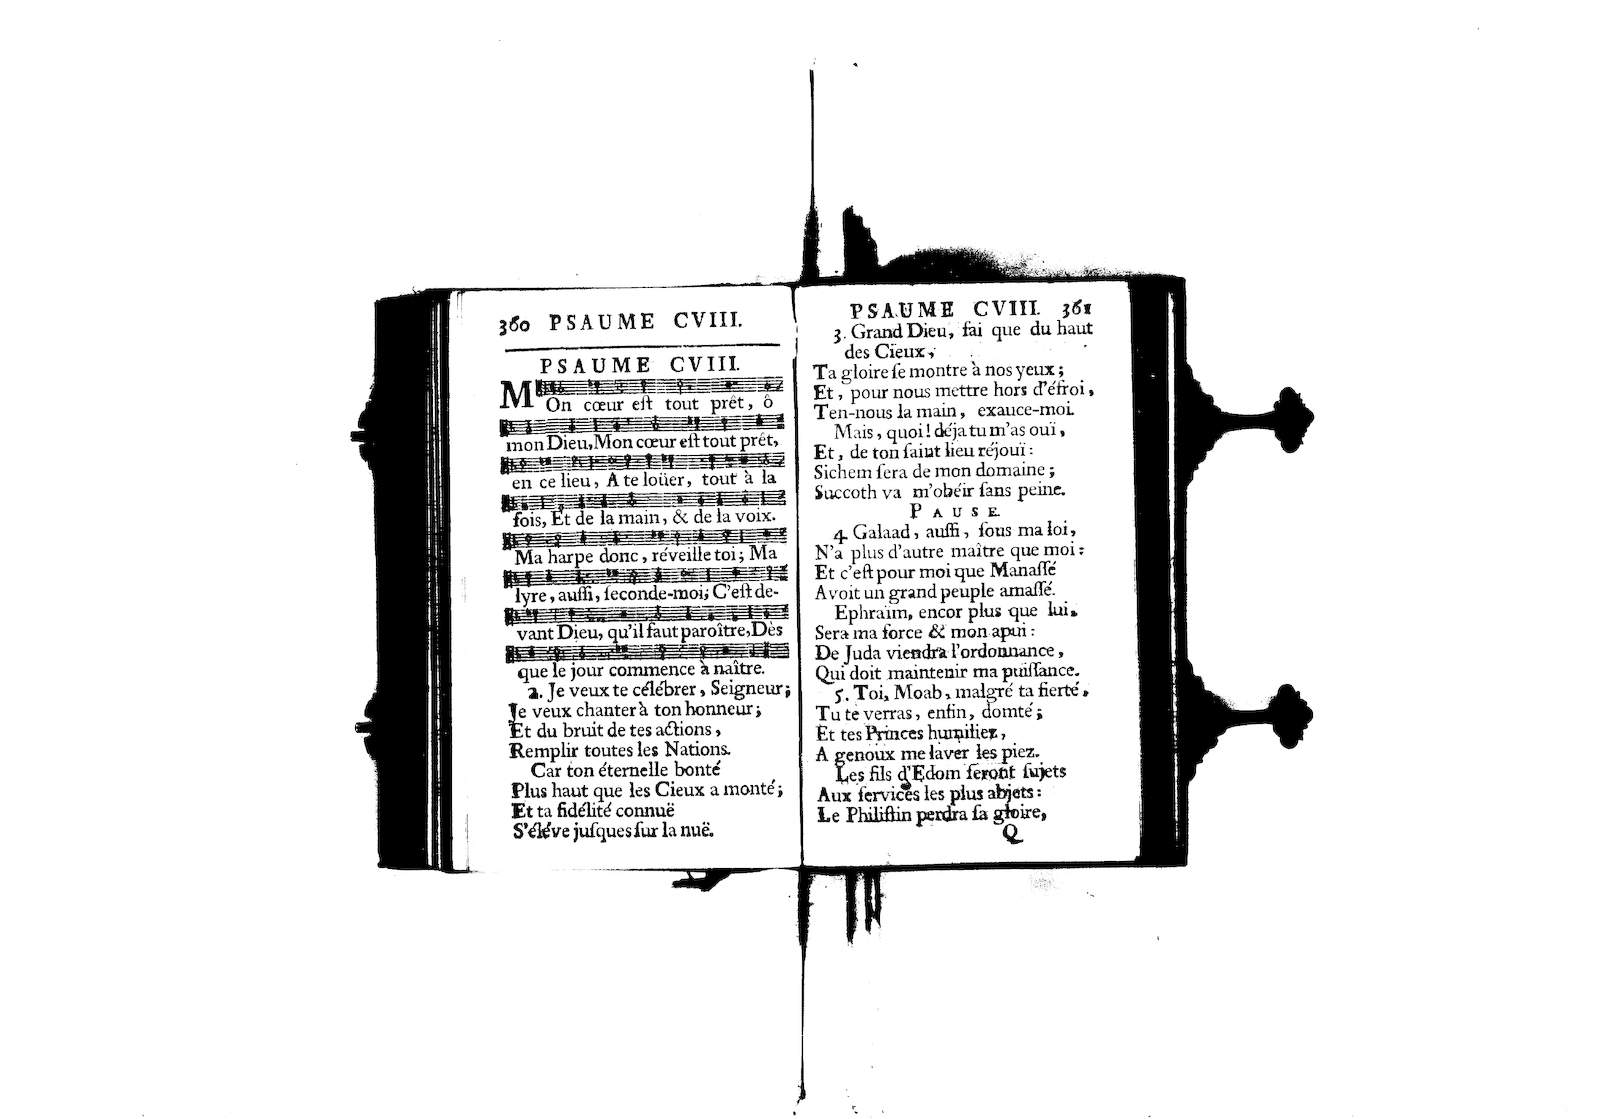 360 PSAUME CVIII.
PSAUME CVIII.
MOn cœur eſt tout prêt, ô
mon Dieu, Mon cœur eſt tout prêt,
en ce lieu, A te loüer, tout à la
fois, Et de la main, & de la voix.
Ma harpe donc, réveille toi; Ma
lyre, auſſi, ſeconde-moi; C'eſt de-
vant Dieu, qu'il faut paroître, Dès
que le jour commence à naître.
2. Je veux te célébrer, Seigneur;
Je veux chanter à ton honneur;
Et du bruit de tes actions,
Remplir toutes les Nations.
Car ton éternelle bonté
Plus haut que les Cieux a monté;
Et ta fidélité connuë
S'éléve juſques ſur la nuë.
PSAUME CVIII. 361
3. Grand Dieu, fai que du haut
des Cieux,
Ta gloire ſe montre à nos yeux;
Et, pour nous mettre hors d'éfroi,
Ten-nous la main, exauce-moi.
Mais, quoi! déja tu m'as ouï,
Et, de ton ſaint lieu réjouï:
Sichem ſera de mon domaine;
Succoth va m'obéir ſans peine.
PAUSE.
4. Galaad, auſſi, ſous ma loi,
N'a plus d'autre maître que moi:
Et c'eſt pour moi que Manaſſé
Avoit un grand peuple amaſſé.
Ephraïm, encor plus que lui,
Sera ma force & mon apui:
De Juda viendra l'ordonnance,
Qui doit maintenir ma puiſſance.
5. Toi, Moab, malgré ta fierté,
Tu te verras, enfin, domté;
Et tes Princes humiliez,
A genoux me laver les piez.
Les fils d'Edom ſeront ſujets
Aux ſervices les plus abjets:
Le Philiſtin perdra ſa gloire,
Q